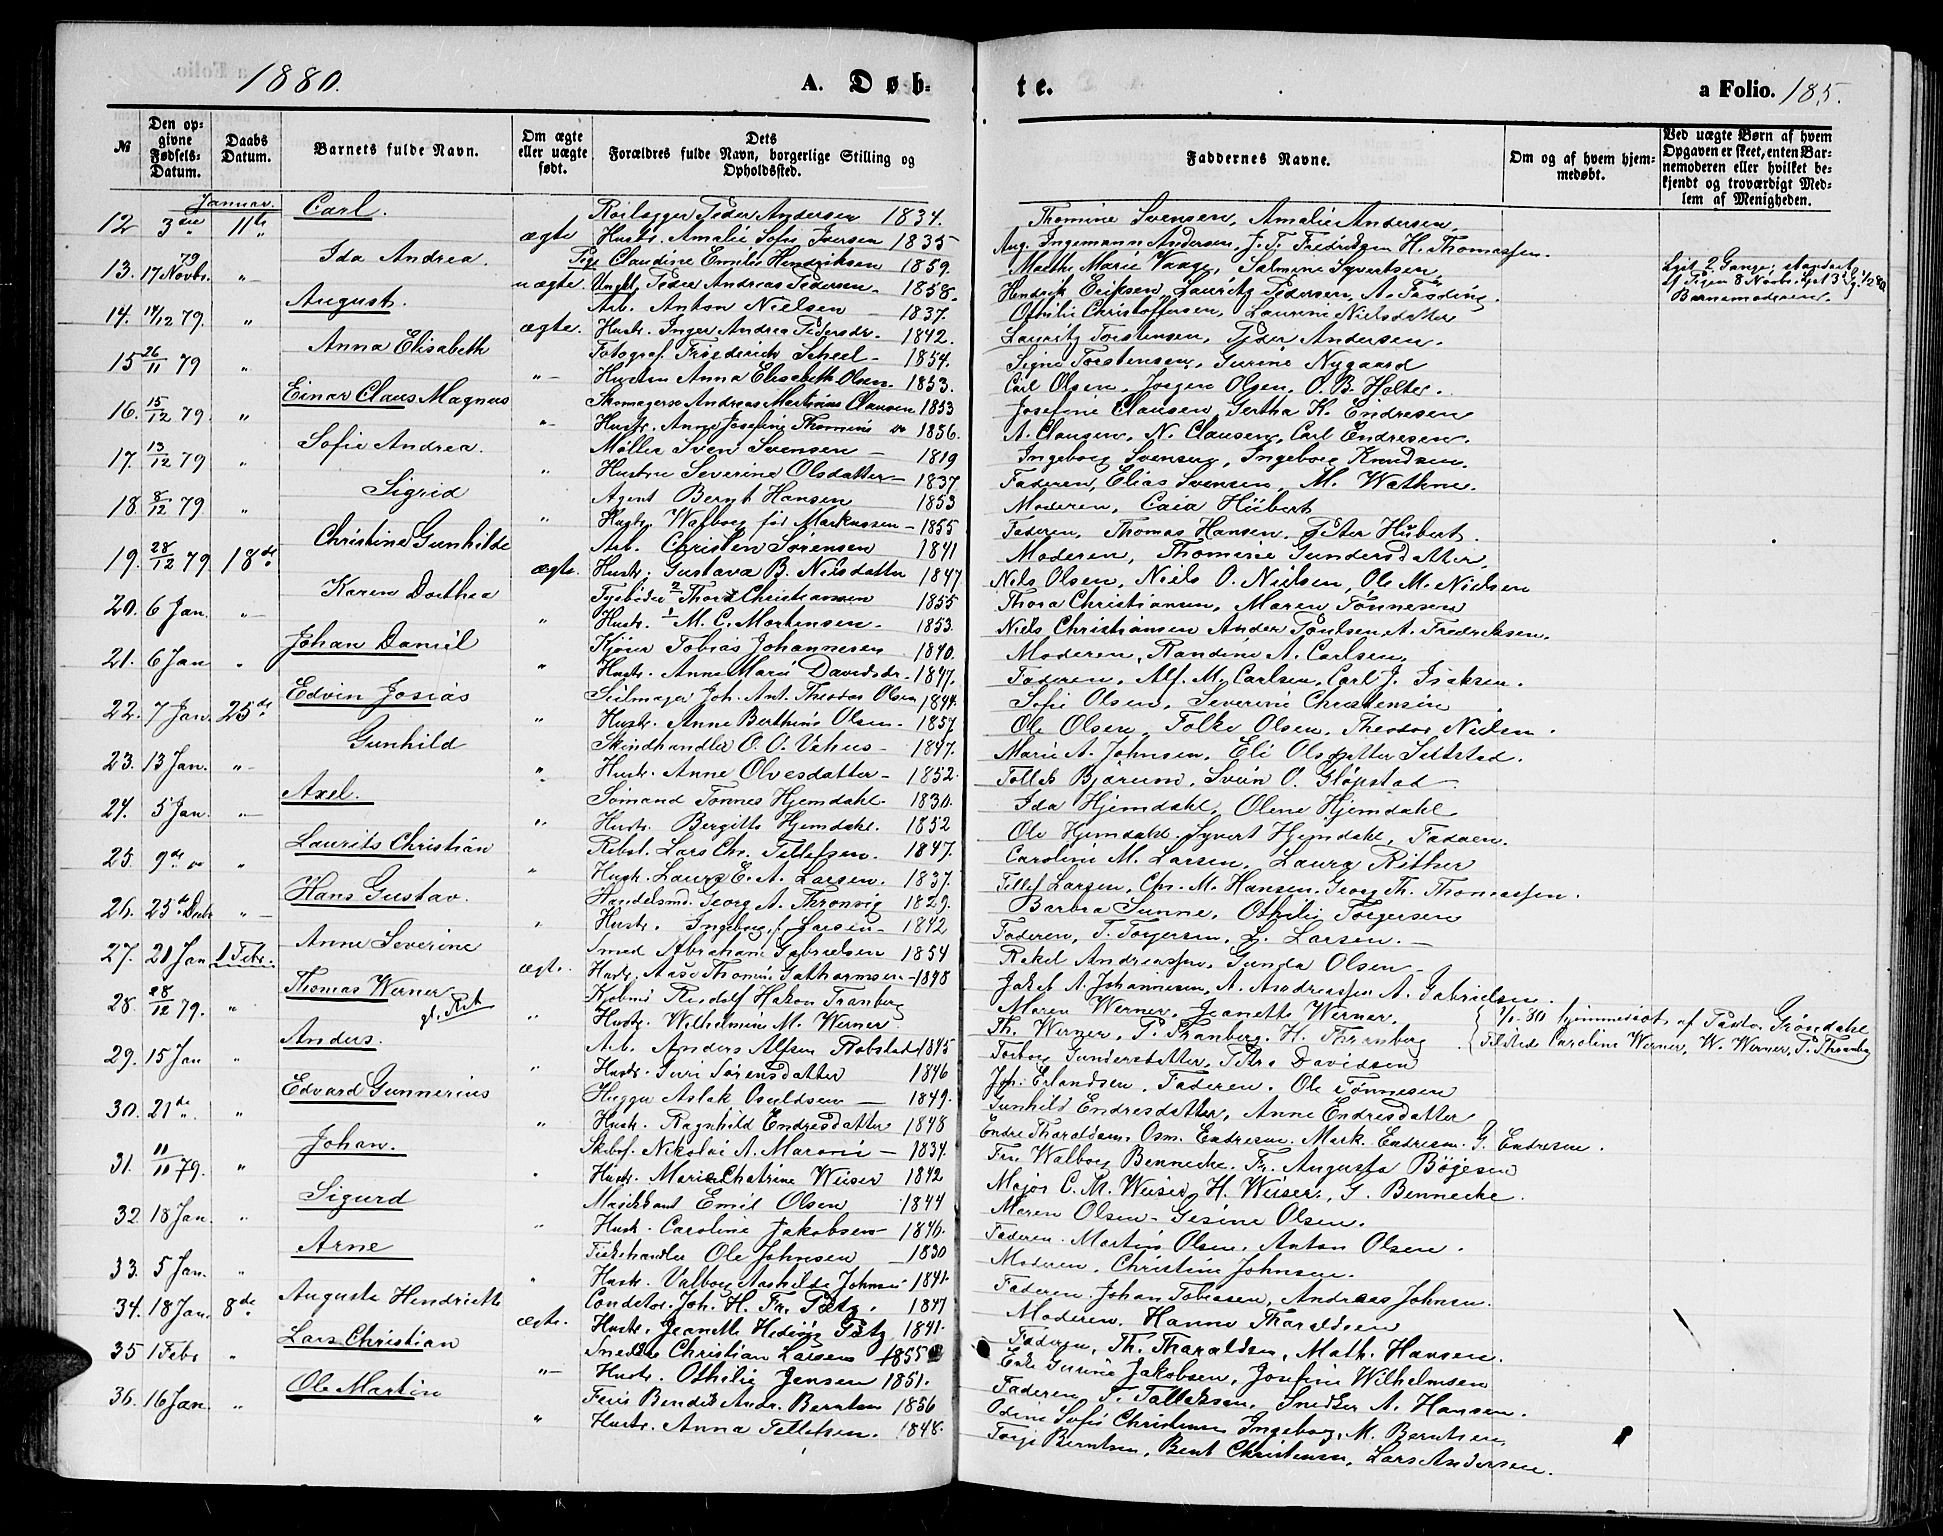 1880.
A. Døb-
te.
a Folio. 185.
№
Den op-
givne
Fødsels-
Datum.
Daabs
Datum.
Barnets fulde Navn.
Om ægte
eller uægte
født.
Dets
Forældres fulde Navn, borgerlige Stilling og
Opholdssted.
Faddernes Navne.
Om og af hvem hjem-
medøbt.
Ved uægte Børn af hvem
Opgaven er skeet, enten Bar-
nemoderen eller hvilket be-
kjendt og troværdigt Med-
lem af Menigheden.
Januar.
12 3die 11te Carl. ægte Peder Andersen 1834. Thomine Svensen, Amalie Andersen.
Hustr. Amalie Sofie Iversen 1835 Aug. Ingemann Andersen, J. T. Fredriksen H. Thomassen.
13. 17 Novbr. 79 " Ida Andrea. uægte. Pige Claudine Emilie Hendriksen 1859. Marthe Marie Vaage, Salmine Syvertsen,
Ungk. Peder Andreas Pedersen 1858. Hendrik Eriksen, Lauritz Pedersen, A.
Barnemoderen.
14. 14/12 79. " August. ægte. Arb. Anton Nielsen 1837. Othilie Christoffersen, Laurine Nielsdatter
Hustr. Inger Andrea Pedersdr. 1842. Lauritz Torstensen, Peder Andersen.
15 26/11 79 " Anna Elisabeth "- Fotograf Friederich Scheel 1854. Signe Torstensen, Gurine Nygaard
Hustru Anna Elisabeth Olsen. 1853. Carl Olsen, Jørgen Olsen, O. B. Holter.
16. 15/12 79. " Einar Claus Magnus "- Andreas Martinius Clausen 1853 Josefine Clausen, Gertha K. Endresen
Hustr. Anne Josefine Thomine 1856. A. Clausen, N. Clausen, Carl Endresen.
17. 13/12 79 " Sofie Andrea. " Møller Sven Svensen 1819 Ingeborg Svensen, Ingeborg Knudsen.
Hustru Severine Olsdatter 1837. Faderen, Elias Svensen, M. Wathne.
18. 8/12 79. " Sigrid " Agent Bernt Hansen 1853 Moderen, Caia Hübert
Hustr. Walborg født Markussen 1855 Faderen, Thomas Hansen, Peter Hübert.
19. 28/12 79 18de Christine Gunhilde ægte. Arb. Christen Sørensen 1841 Moderen, Thomine Gundersdatter,
Hustr. Gustava B. Nilsdatter 1847 Niels Olsen, Niels O. Nielsen, Ole M. Nielsen
20. 6 Jan. " Karen Dorthea " Thor Christiansen 1855 Thora Christiansen, Maren Tönnesen
Hustr. M. C. Mortensen. 1853. Niels Christiansen Ander Poulsen, A. Fredriksen.
21. 6 Jan " Johan Daniel " Tobias Johannesen 1840. Moderen, Randine A. Carlsen,
Hustr. Anne Marie Davidsdr. 1847. Faderen, Alf. M. Carlsen, Carl J. Isaksen.
22. 7 Jan. 25de Edvin Josias " Seilmager Joh. Ant. Theodor Olsen 1844. Sofie Olsen, Severine Christensen
Hustr. Anne Berthine Olsen. 1857 Ole Olsen, Folke Olsen, Theodor Nielsen.
23. 13 Jan. " Gunhild " Skindhandler O. O. Vehus 1847. Marie A. Johnsen, Eli Olsdatter
Hustr. Anne Olvesdatter 1852. Tollef Bjærum, Svein O. Gløpstad
24. 5 Jan. " Axel. " Sømand Tønnes Hjemdahl. 1830. Ida Hjemdahl, Olene Hjemdahl
Hustr. Bergitte Hjemdahl. 1852 Ole Hjemdahl. Syvert Hjemdahl, Faderen.
25. 9de " Laurits Christian " Lars Chr. Tellefsen. 1847. Caroline M. Larsen, Laura
Hustr. Laura E. A. Larsen. 1837. Tellef Larsen, Chr. M. Hansen, Georg Th. Thomassen.
26. 25de Decb. " Hans Gustav. " Handelsmd. Georg A. 1829. Barbra Sunne, Othilie Torgersen
Hustr. Ingeborg f. Larsen 1842 Faderen, T. Torgersen, L. Larsen.
27. 20 Jan 1 Febr. Anne Severine ægte. Smed Abraham Gabrielsen 1854 Rakel Andreassen, Gunda Olsen
Hustr. Aase Thomine 1848 Jakob A. Johannesen, A. Andreassen A. Gabrielsen.
28. 28/12 79. " Thomas Werner " Kjøbmd. Rudolf Hakon Tranberg Maren Werner, Jeanette Werner.
Hustr. Wilhelmine M. Werner Th. Werner, P. Tranberg. H. Tranberg
hjemmedøbt af Pastor Grøndahl
Tilstede Caroline Werner, W. Werner, P. Tranberg
29. 15 Jan " Anders. " Arb. Anders Alfsen Robstad 1845 Torborg Gundersdatter, Petra Davidsen
Hustr. Guri Sørensdatter 1846 Joh. Erlandsen, Faderen. Ole Tønnesen
30. 21de " Edvard Gunnerius " Aslak Osuldsen 1849. Gunhild Endresdatter, Anne Endresdatter
Hustr. Ragnhild Endresdatter 1848 Endre Tharaldsen, Osm. Endresen. Mark. Endresen. G. Endresen.
31. 11/11 79. " Johan. " Nikolai A. Maroni 1834. Walborg Bennecke. Fr. Augusta Böjesen
Hustr. Marie Chatrine Weiser 1842 Major C. M. Weiser, H. Weiser, G. Bennecke.
32 18 Jan. " Sigurd " Emil Olsen 1844 Maren Olsen, Gesine Olsen.
Hustr. Caroline Jakobsen 1846. Faderen. Martin Olsen. Anton Olsen.
33. 5 Jan. " Arne " Fiskehandler Ole Johnsen 1830 Moderen, Christine Johnsen.
Hustr. Valborg Aashilde Johnsen 1841. Faderen. Johan Tobiasen, Andreas Johnsen.
34. 18 Jan. 8de Auguste Henriette ægte. Conditor. Joh. H. Fr. Pätz. 1841 Moderen. Hanne Tharaldsen
Hustr. Jeanette Hedvig Pätz 1841. Faderen, Th. Tharaldsen, Math. Hansen.
35 1 Febr " Lars Christian "- Christian Larsen 1855 Enke Gurine Jakobsen, Josefine Wilhelmsen
Hustr. Othilie Jensen 1851. Faderen, T. Tallaksen, Snedker A. Hansen.
36. 16 Jan. " Ole Martin " Bendik Andr. Berntsen 1856 Odine Sofie Christensen Ingeborg, M. Berntsen,
Hustr. Anna Tellefsen. 1848. Terje Berntsen, Bent Christensen, Lars Andersen.